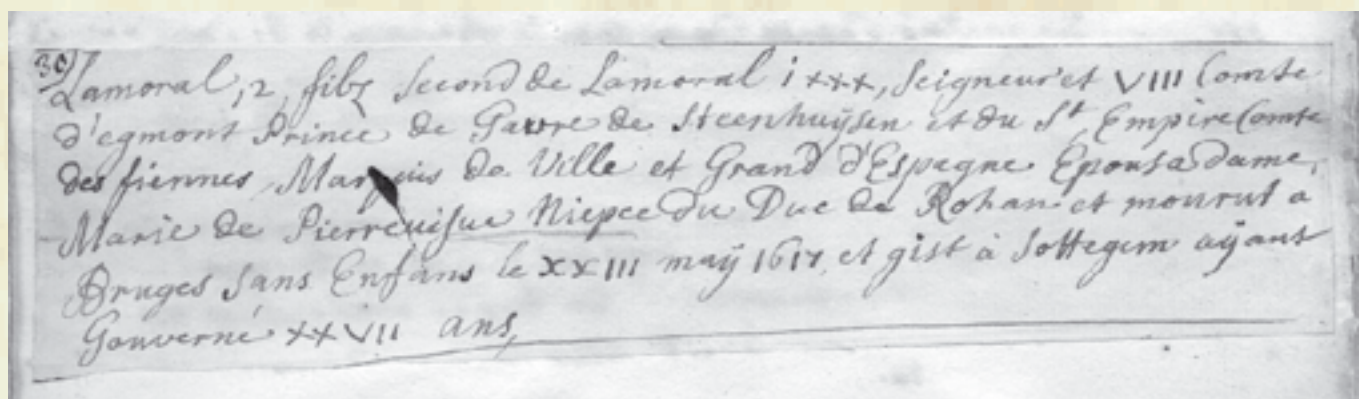 30) Lamoral, 2, filz second de Lamoral i xxx, Seigneur et VIII Comte
d'egmont Prince de Gavre de Steenhuÿsen et du St. Empire Comte
des fiennes, Marquis de Ville et Grand d'Espagne Epousa dame,
Marie de Pierrevisue Niepce du Duc de Rohan et mourut a
Bruges sans Enfans le XXIII maÿ 1617, et gist à Sottegem aÿant
Gouverné XXVII ans,